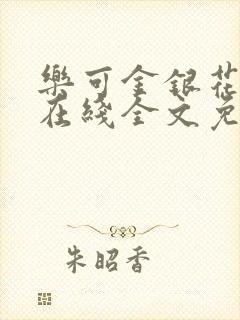 樂可金銀花
在綫全文免
朱昭香